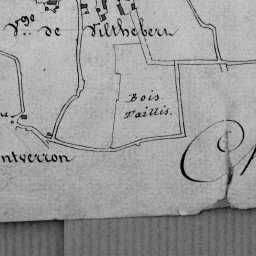 Vge de Vilthebert
Bois
Taillis.
ntverron